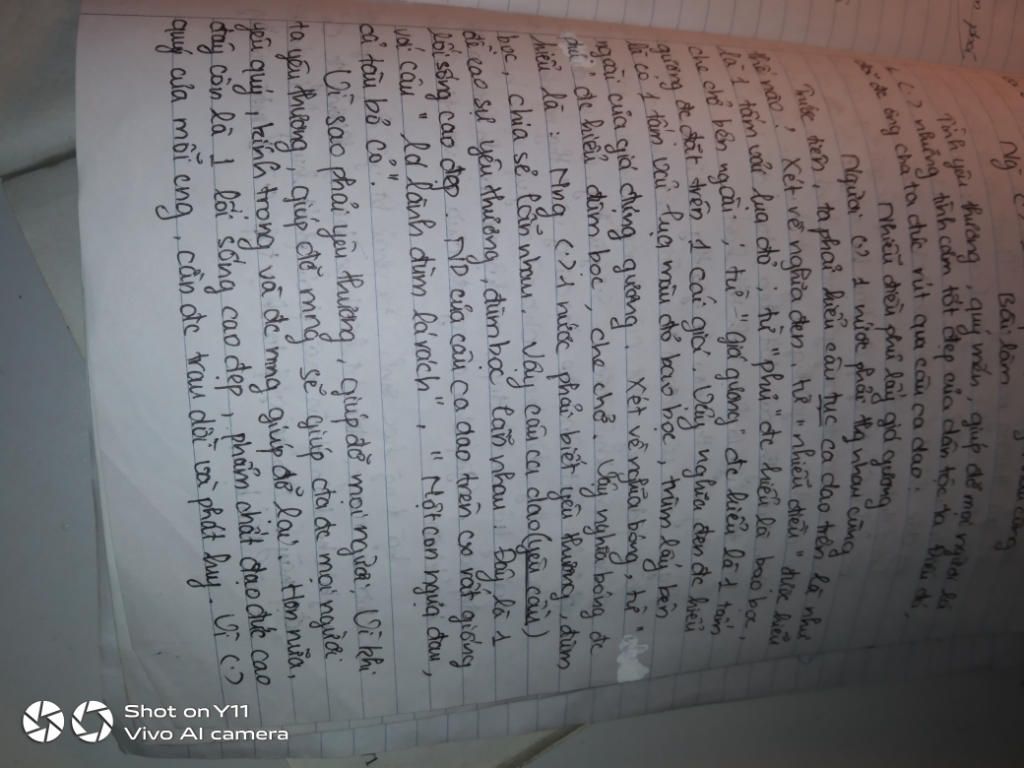 Bài làm
Tình yêu thương, quý mến, giúp đỡ mọi người là
1 (.) những tình cảm tốt đẹp của dân tộc ta. Điều đó,
đã đc ông cha ta đúc rút qua câu ca dao:
Nhiễu điều phủ lấy giá gương
Người (.) 1 nước phải thg nhau cùng
Trước tiên, ta phải hiểu câu tục ca dao trên là như
thế nào? Xét về nghĩa đen, từ "nhiễu điều" được hiểu
là 1 tấm vải lụa đỏ; từ "phủ" đc hiểu là bao bọc,
che chở bên ngoài; từ "giá gương" đc hiểu là 1 tấm
gương đc đặt trên 1 cái giá. Vậy nghĩa đen đc hiểu
là có 1 tấm vải lụa màu đỏ bao bọc, trùm lấy bên
ngoài của giá đúng gương. Xét về nghĩa bóng, từ "
" đc hiểu đùm bọc, che chở. Vậy nghĩa bóng đc
hiểu là: Nng (.) 1 nước phải biết yêu thương, đùm
bọc, chia sẻ lẫn nhau. Vậy câu ca dao (yêu cầu)
đề cao sự yêu thương, đùm bọc lẫn nhau. Đây là 1
lối sống cao đẹp. ND của câu ca dao trên có rất giống
với câu "Lá lành đùm lá rách", "Một con ngựa đau,
cả tàu bỏ cỏ".
Vì sao phải yêu thương, giúp đỡ mọi người, Vì khi
ta yêu thương, giúp đỡ mng sẽ giúp cta đc mọi người
yêu quý, kính trọng và đc mng giúp đỡ lại. Hơn nữa,
đây còn là 1 lối sống cao đẹp, phẩm chất đạo đức cao
quý của mỗi cng, cần đc trau dồi và phát huy. Vì (.)
Shot on Y11
Vivo AI camera